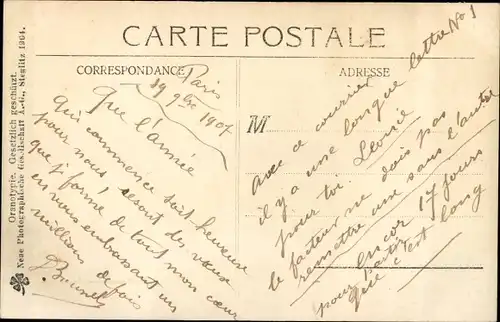 CARTE POSTALE
CORRESPONDANCE
ADRESSE
M
Paris
19 9bre 1907
Que l'année
qui commence soit heureuse
pour nous! ce sont des vœux
que je forme de tout mon cœur
en vous embrassant un
millions de fois
lettre No 1
Avec ce courrier
il y a une longue
pour toi. Leonie
le facteur ne dois pas
remettre une sans l'autre
encor 17 jours
pour
Que c'est long
Oranotypie. Gesetzlich geschützt.
Neue Photographische Gesellschaft A.-G., Steglitz 1904.